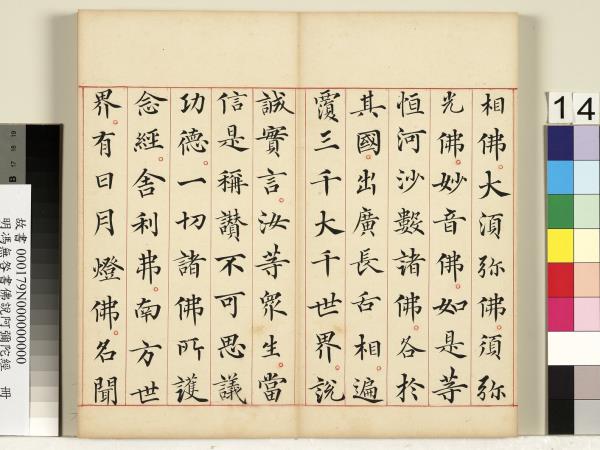 相佛大須彌佛須彌
光佛妙音佛如是等
恒河沙數諸佛各於
其國出廣長舌相遍
覆三千大千世界說
誠實言汝等眾生當
信是稱讚不可思議
功德一切諸佛所護
念經舍利弗南方世
界有日月燈佛名聞
14
故書 000179N000000000
明馮無咎書佛說阿彌陀經 冊